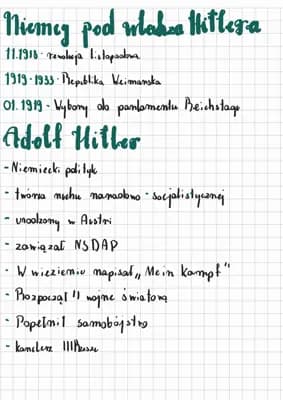 Niemcy pod władza Hitlera
11.1918 - rewolucja listopadowa
1919-1933 - Republika Weimarska
01.1919 - Wybory do parlamentu Reichstagu
Adolf Hitler
- Niemiecki polityk
- twórca ruchu narodowo - socjalistycznej
- urodzony w Austri
- zawiązał NSDAP
- W wiezieniu napisał „Mein Kampf"
- Rozpoczął II wojne światową
- Popełnił samobójstwo
- kanclerz III Rzeszy